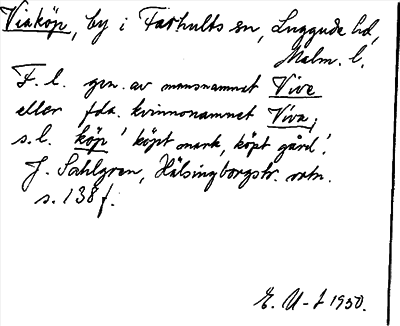 Viaköp, by i Farhults sn, Luggude hd,
Malm. l.
F. l. gen. av mansnamnet Vive
eller fda. kvinnonamnet Viva;
s. l. köp 'köpt mark, köpt gård'.
J. Sahlgren, Hälsingborgstr. ortn.
s. 138 f.
E. U-t 1950.